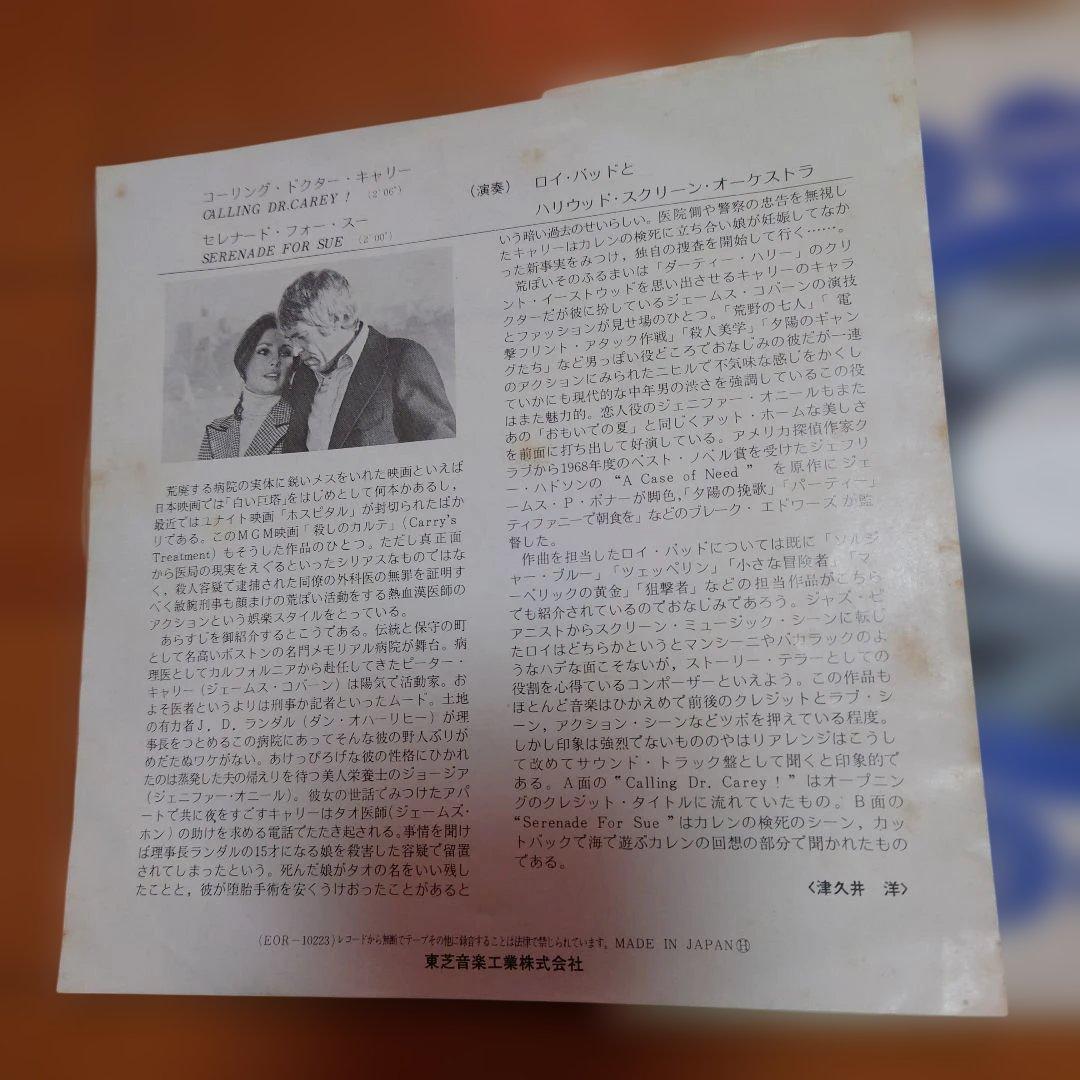 コーリング・ドクター・キャリー
CALLING DR.CAREY! (2'06")
セレナード・フォー・スー
SERENADE FOR SUE (2'00")
(演奏) ロイ・バッドと
ハリウッド・スクリーン・オーケストラ
荒廃する病院の実体に鋭いメスをいれた映画といえば
日本映画では「白い巨塔」をはじめとして何本かあるし,
最近ではユナイト映画「ホスピタル」が封切られたばか
りである。このMGM映画「殺しのカルテ」(Carry's
Treatment)もそうした作品のひとつ。ただし真正面
から医局の現実をえぐるといったシリアスなものではな
く,殺人容疑で逮捕された同僚の外科医の無罪を証明す
べく敏腕刑事も顔まけの荒ぽい活動をする熱血漢医師の
アクションという娯楽スタイルをとっている。
あらすじを御紹介するとこうである。伝統と保守の町
として名高いボストンの名門メモリアル病院が舞台。病
理医としてカルフォルニアから赴任してきたピーター・
キャリー(ジェームス・コバーン)は陽気で活動家。お
よそ医者というよりは刑事か記者といったムード。土地
の有力者J.D.ランダル(ダン・オハーリヒー)が理
事長をつとめるこの病院にあってそんな彼の野人ぶりが
めだたぬワケがない。あけっぴろげな彼の性格にひかれ
たのは蒸発した夫の帰えりを待つ美人栄養士のジョージア
(ジェニファー・オニール)。彼女の世話でみつけたアパ
ートで共に夜をすごすキャリーはタオ医師(ジェームズ・
ホン)の助けを求める電話でたたき起される。事情を聞け
ば理事長ランダルの15才になる娘を殺害した容疑で留置
されてしまったという。死んだ娘がタオの名をいい残し
たことと,彼が堕胎手術を安くうけおったことがあると
いう暗い過去のせいらしい。医院側や警察の忠告を無視し
たキャリーはカレンの検死に立ち合い娘が妊娠してなか
った新事実をみつけ,独自の捜査を開始して行く……。
荒ぽいそのふるまいは「ダーティー・ハリー」のクリ
ント・イーストウッドを思い出させるキャリーのキャラ
クターだが彼に扮しているジェームス・コバーンの演技
とファッションが見せ場のひとつ。「荒野の七人」「電
撃フリント・アタック作戦」「殺人美学」「夕陽のギャン
グたち」など男っぽい役どころでおなじみの彼だが一連
のアクションにみられたニヒルで不気味な感じをかくし
ていかにも現代的な中年男の渋さを強調しているこの役
はまた魅力的。恋人役のジェニファー・オニールもまた
あの「おもいでの夏」と同じくアット・ホームな美しさ
を前面に打ち出して好演している。アメリカ探偵作家ク
ラブから1968年度のベスト・ノベル賞を受けたジェフリ
ー・ハドソンの “A Case of Need” を原作にジェ
ームス・P・ボナーが脚色,「夕陽の挽歌」「パーティー」
「ティファニーで朝食を」などのブレーク・エドワーズが監
督した。
作曲を担当したロイ・バッドについては既に「ソルジ
ャー・ブルー」「ツェッペリン」「小さな冒険者」「マ
ーベリックの黄金」「狙撃者」などの担当作品がこちら
でも紹介されているのでおなじみであろう。ジャズ・ピ
アニストからスクリーン・ミュージック・シーンに転じ
たロイはどちらかというとマンシーニやバカラックのよ
うなハデな面こそないが,ストーリー・テラーとしての
役割を心得ているコンポーザーといえよう。この作品も
ほとんど音楽はひかえめで前後のクレジットとラブ・シ
ーン,アクション・シーンなどツボを押えている程度。
しかし印象は強烈でないもののやはリアレンジはこうし
て改めてサウンド・トラック盤として聞くと印象的で
ある。A面の“Calling Dr. Carey!”はオープニン
グのクレジット・タイトルに流れていたもの。B面の
“Serenade For Sue”はカレンの検死のシーン,カッ
トバックで海で遊ぶカレンの回想の部分で聞かれたもの
である。
〈津久井 洋〉
(EOR-10223)レコードから無断でテープその他に録音することは法律で禁じられています。MADE IN JAPAN Ⓗ
東芝音楽工業株式会社